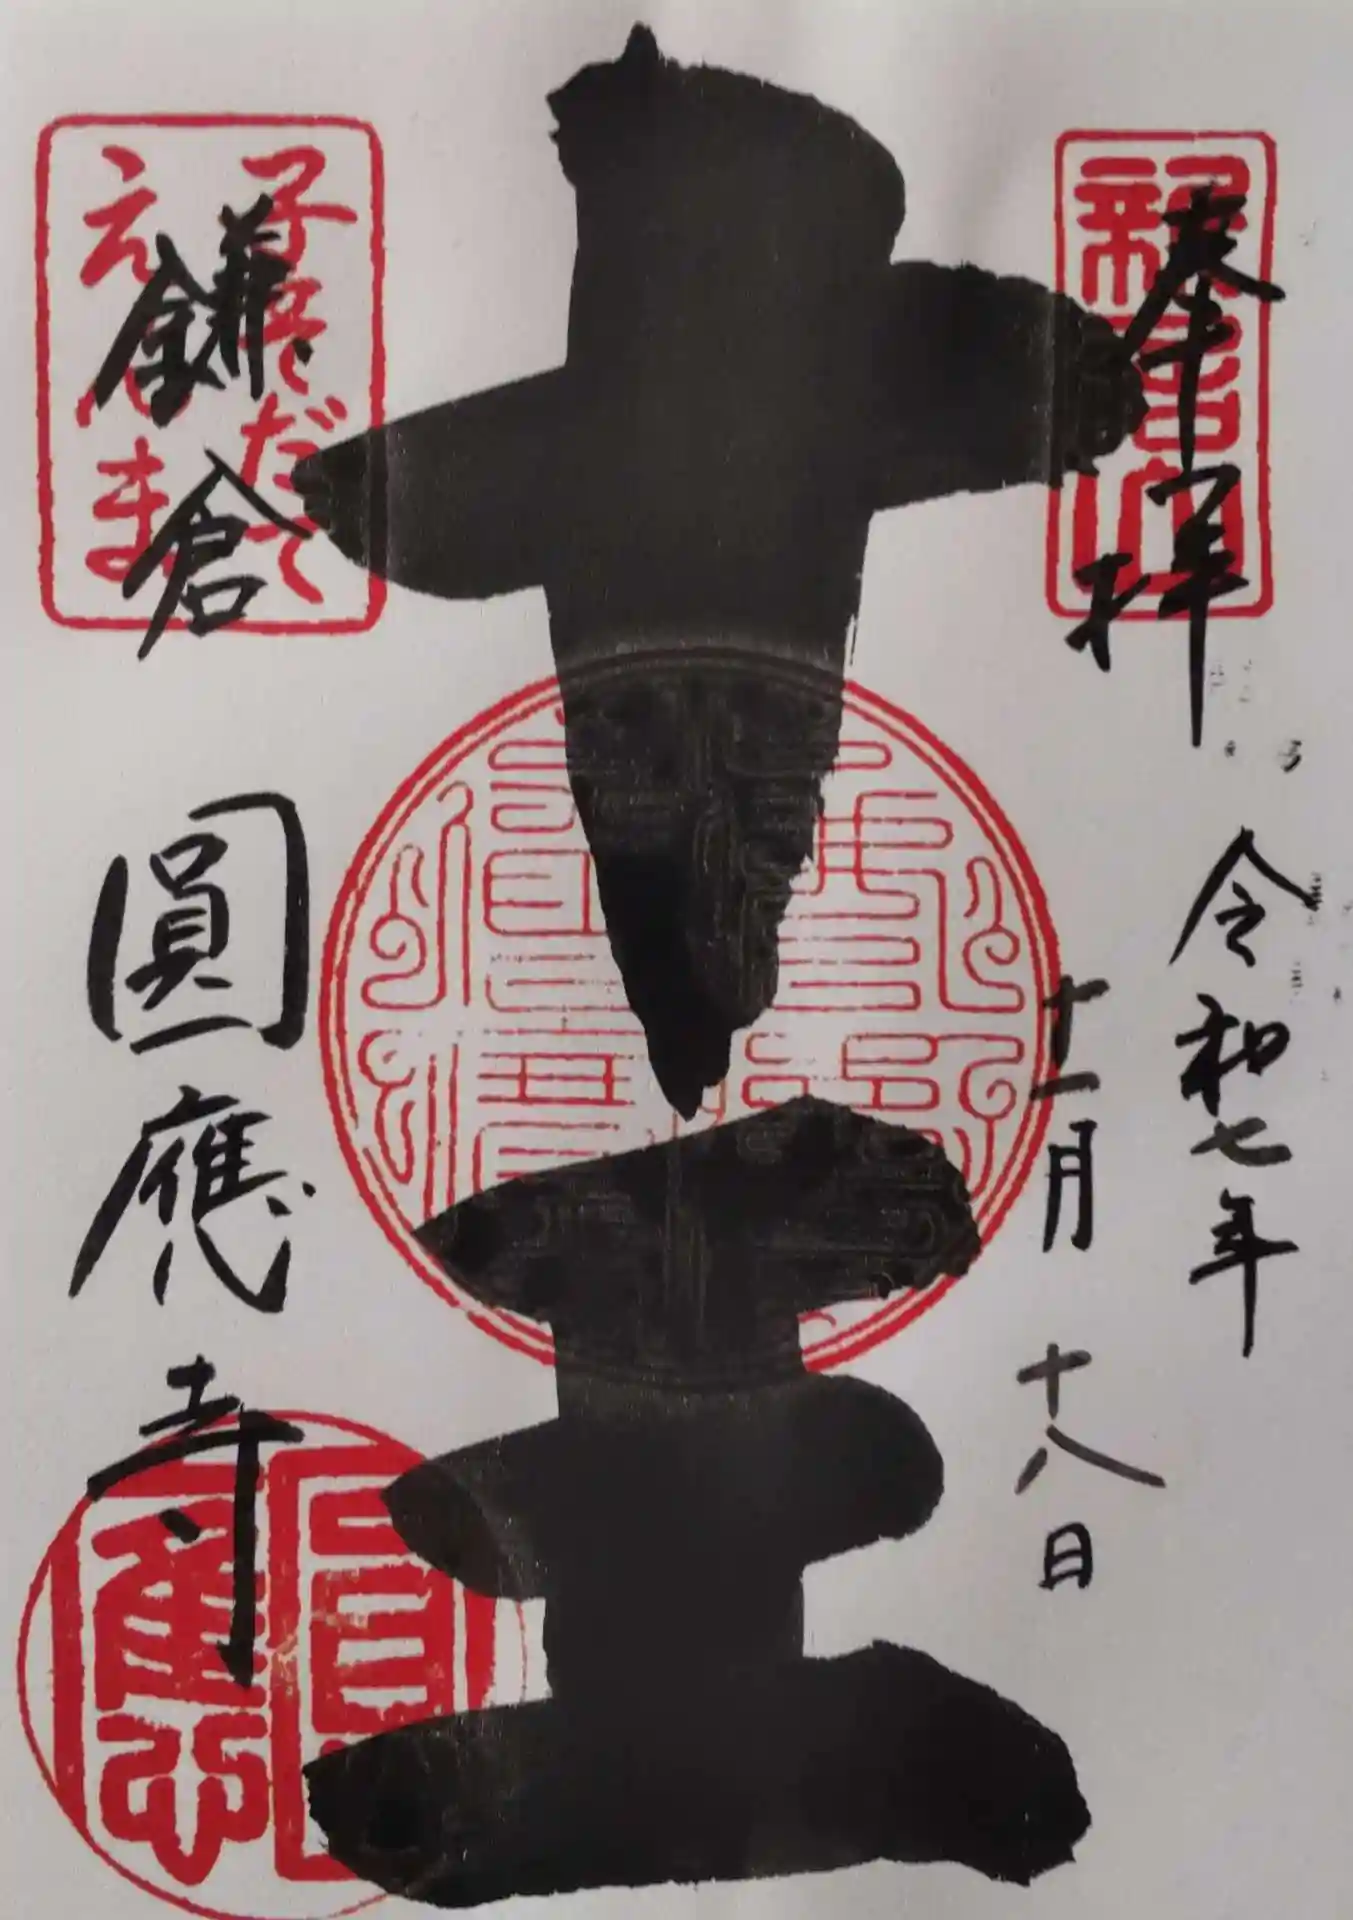 奉拝
令和七年
十一月十八日
十王
子そだて
えんま
鎌倉
圓應寺
新居山
圓應